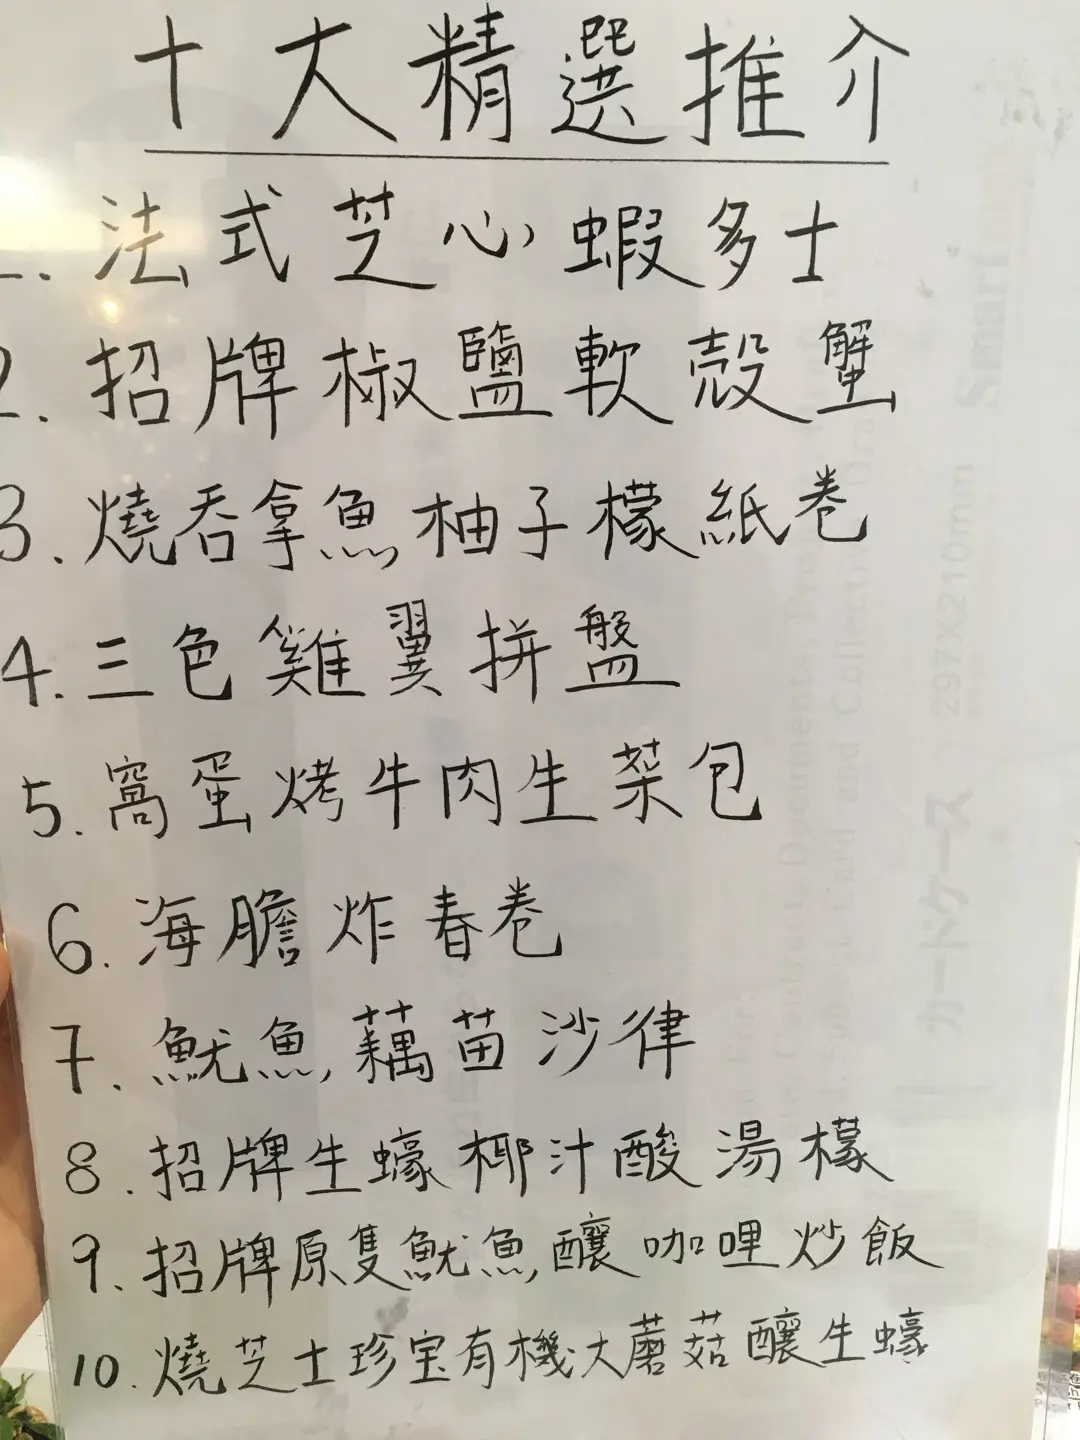 十大精選推介
1. 法式芝心蝦多士
2. 招牌椒鹽軟殼蟹
3. 燒吞拿魚柚子檬紙卷
4. 三色雞翼拼盤
5. 窩蛋烤牛肉生菜包
6. 海膽炸春卷
7. 魷魚藕苗沙律
8. 招牌生蠔椰汁酸湯檬
9. 招牌原隻魷魚釀咖哩炒飯
10. 燒芝士珍宝有機大蘑菇釀生蠔
Smart
297X210mm
カードケース